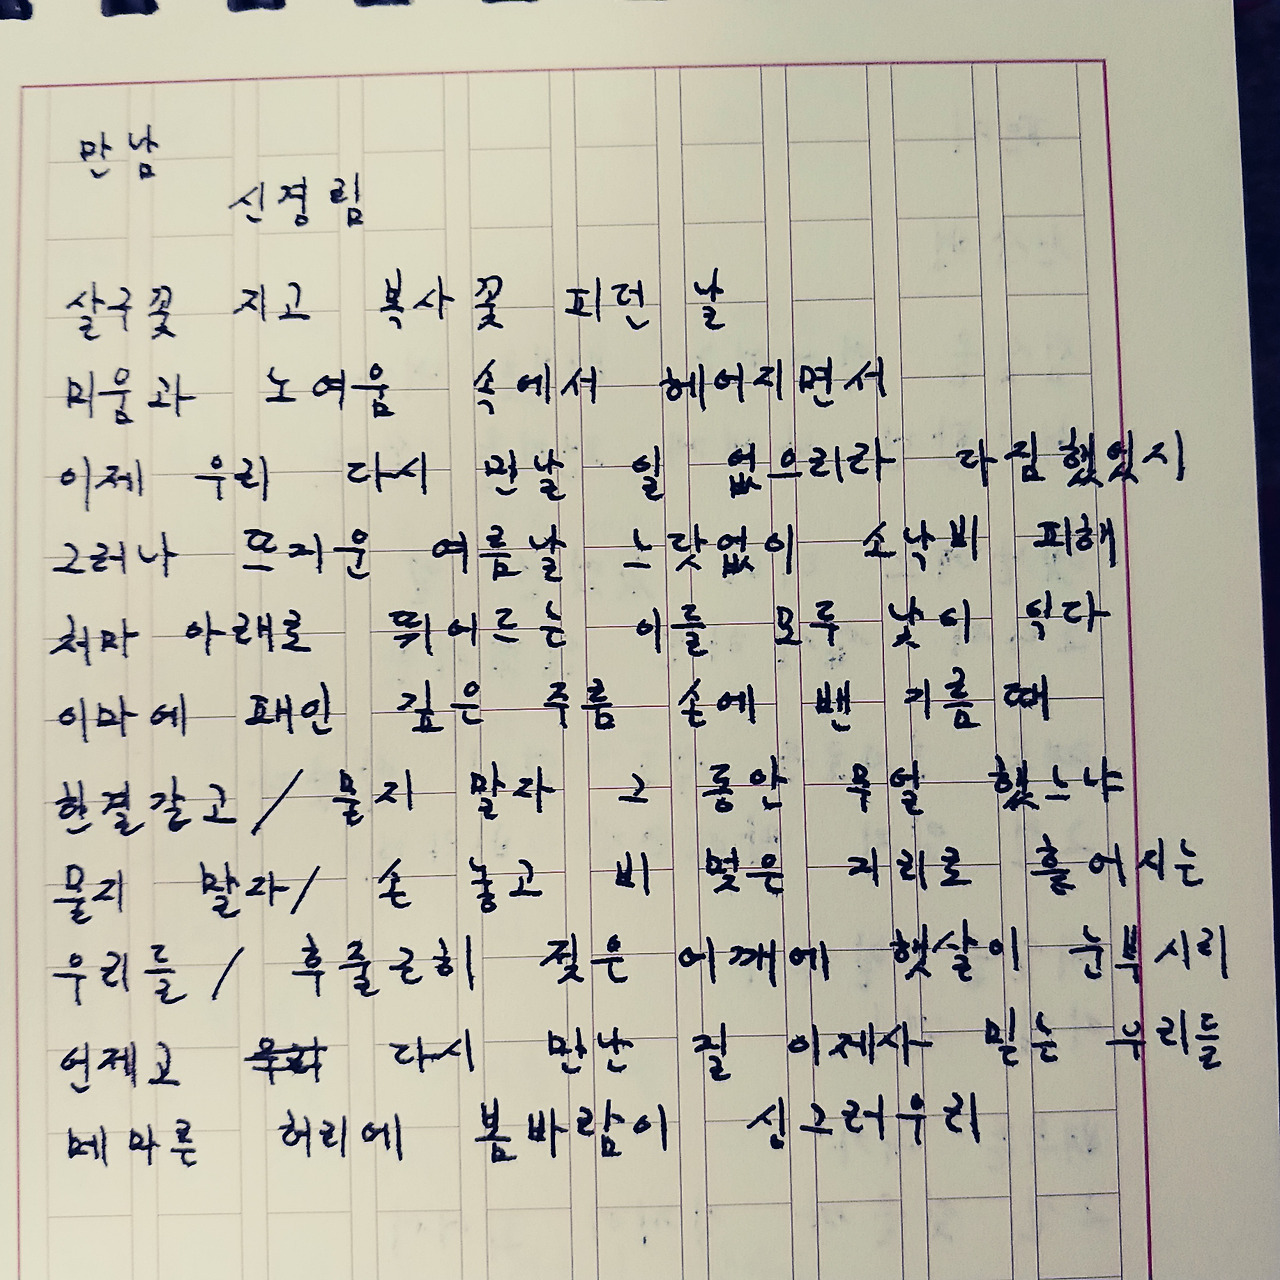 만남
신경림
살구꽃 지고 복사꽃 피던 날
미움과 노여움 속에서 헤어지면서
이제 우리 다시 만날 일 없으리라 다짐했었지
그러나 뜨거운 여름날 느닷없이 소낙비 피해
처마 아래로 뛰어드는 이들 모두 낯이 익다
이마에 패인 깊은 주름 손에 밴 기름때
한결같고 / 묻지 말자 그 동안 무얼 했느냐
묻지 말자 / 손 놓고 비 멎은 거리로 흩어지는
우리들 / 후줄근히 젖은 어깨에 햇살이 눈부시리
언제고 다시 만난 걸 이제사 믿는 우리들
메마른 허리에 봄바람이 싱그러우리